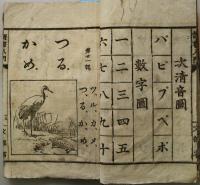 次清音圖
パピプペポ
數字圖
一二三四五
六七八九十
第一課
ツル、カメ、
つる、かめ、
つる、
かめ、